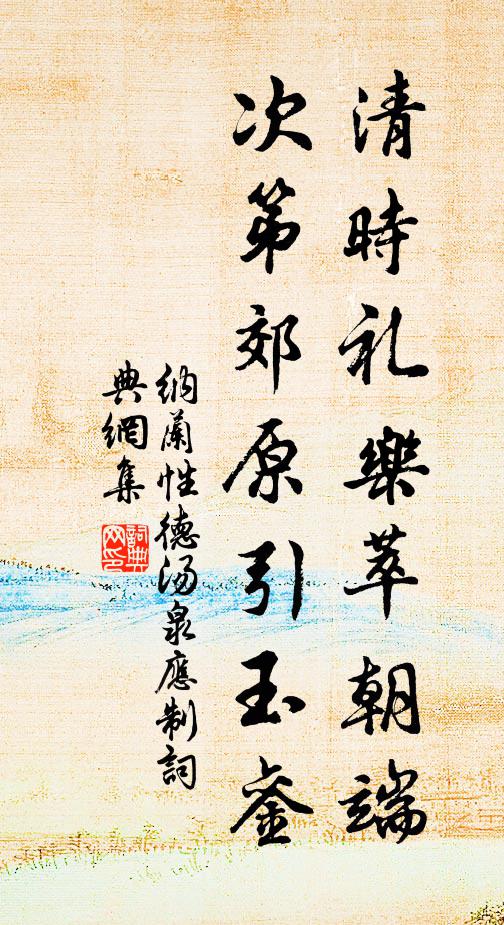 清時礼樂萃朝端
次第郊原引玉鑾
納蘭性德湯泉應制詞
典網集
詞典
网印